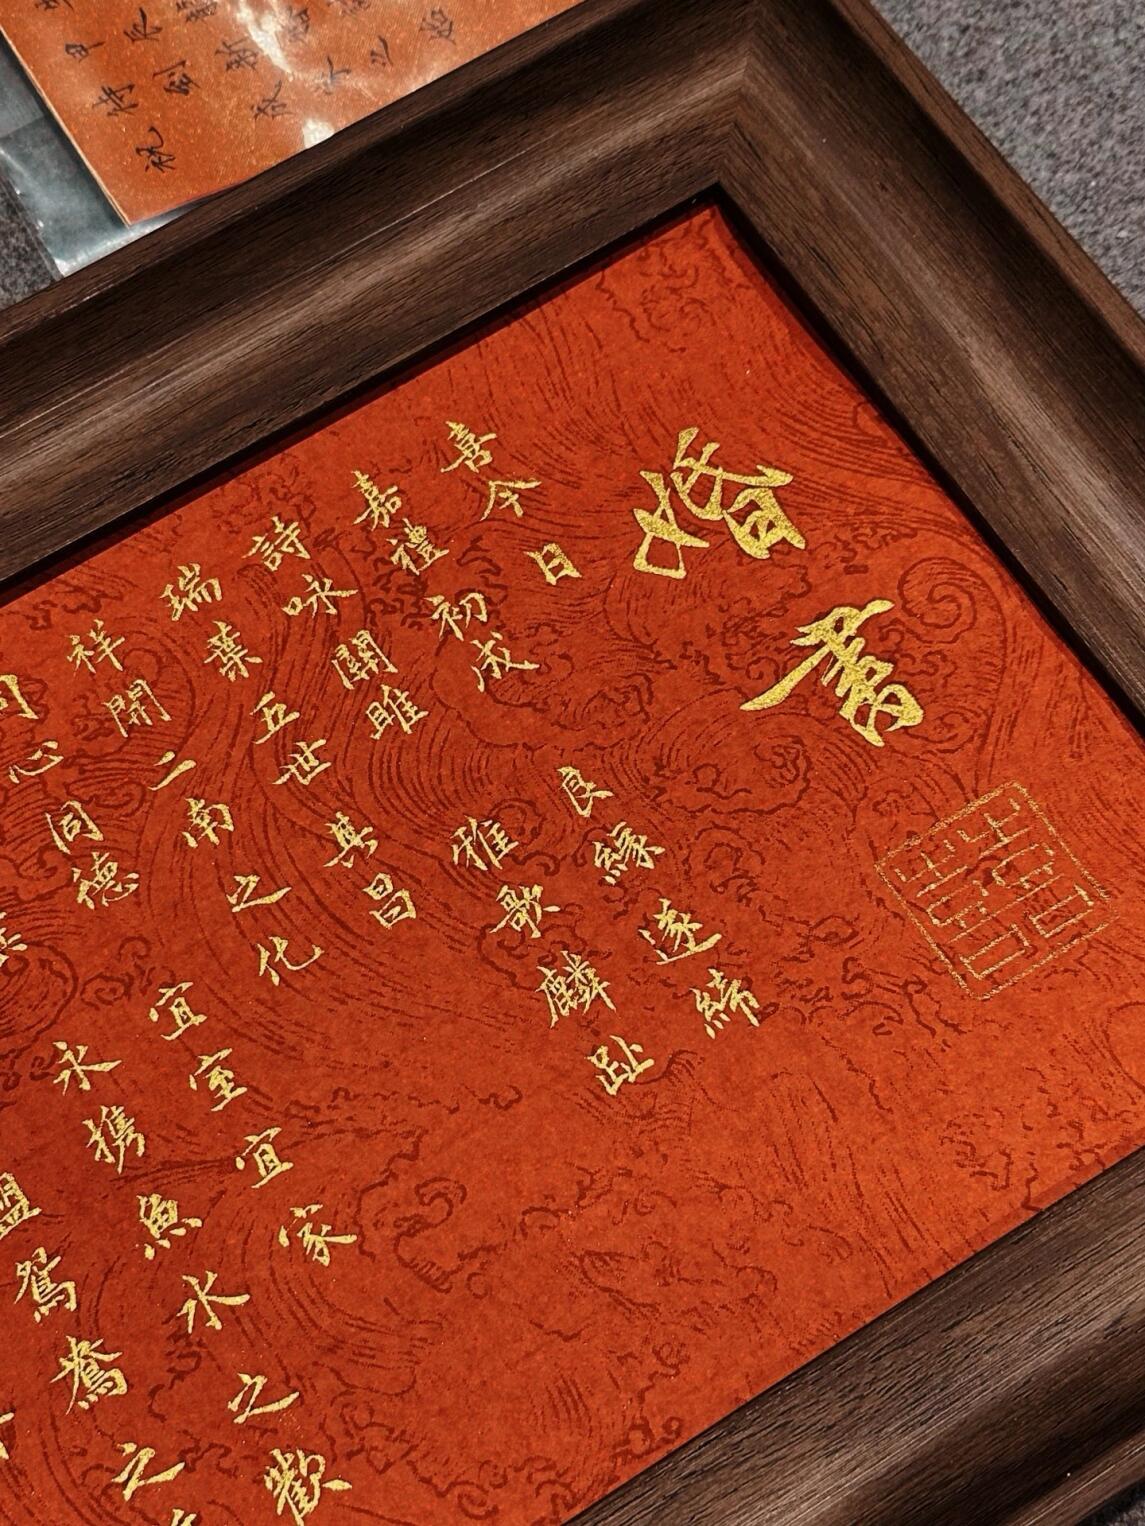 婚書
喜今日
嘉禮初成 良緣遂締
詩詠關雎 雅歌麟趾
瑞葉五世其昌
祥開二南之化
同心同德 宜室宜家
永携魚水之歡
盟鴛鴦之
囍
祝